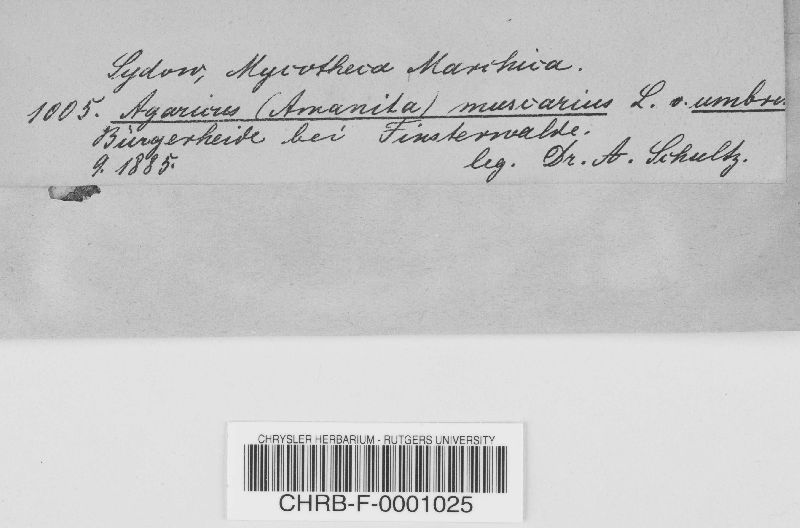 Sydow, Mycotheca Marchica.
1005. Agaricus (Amanita) muscarius L. v. umbri
Bürgerheide bei Finsterwalde.
9. 1885.
leg. Dr. A. Schultz.
CHRYSLER HERBARIUM - RUTGERS UNIVERSITY
CHRB-F-0001025